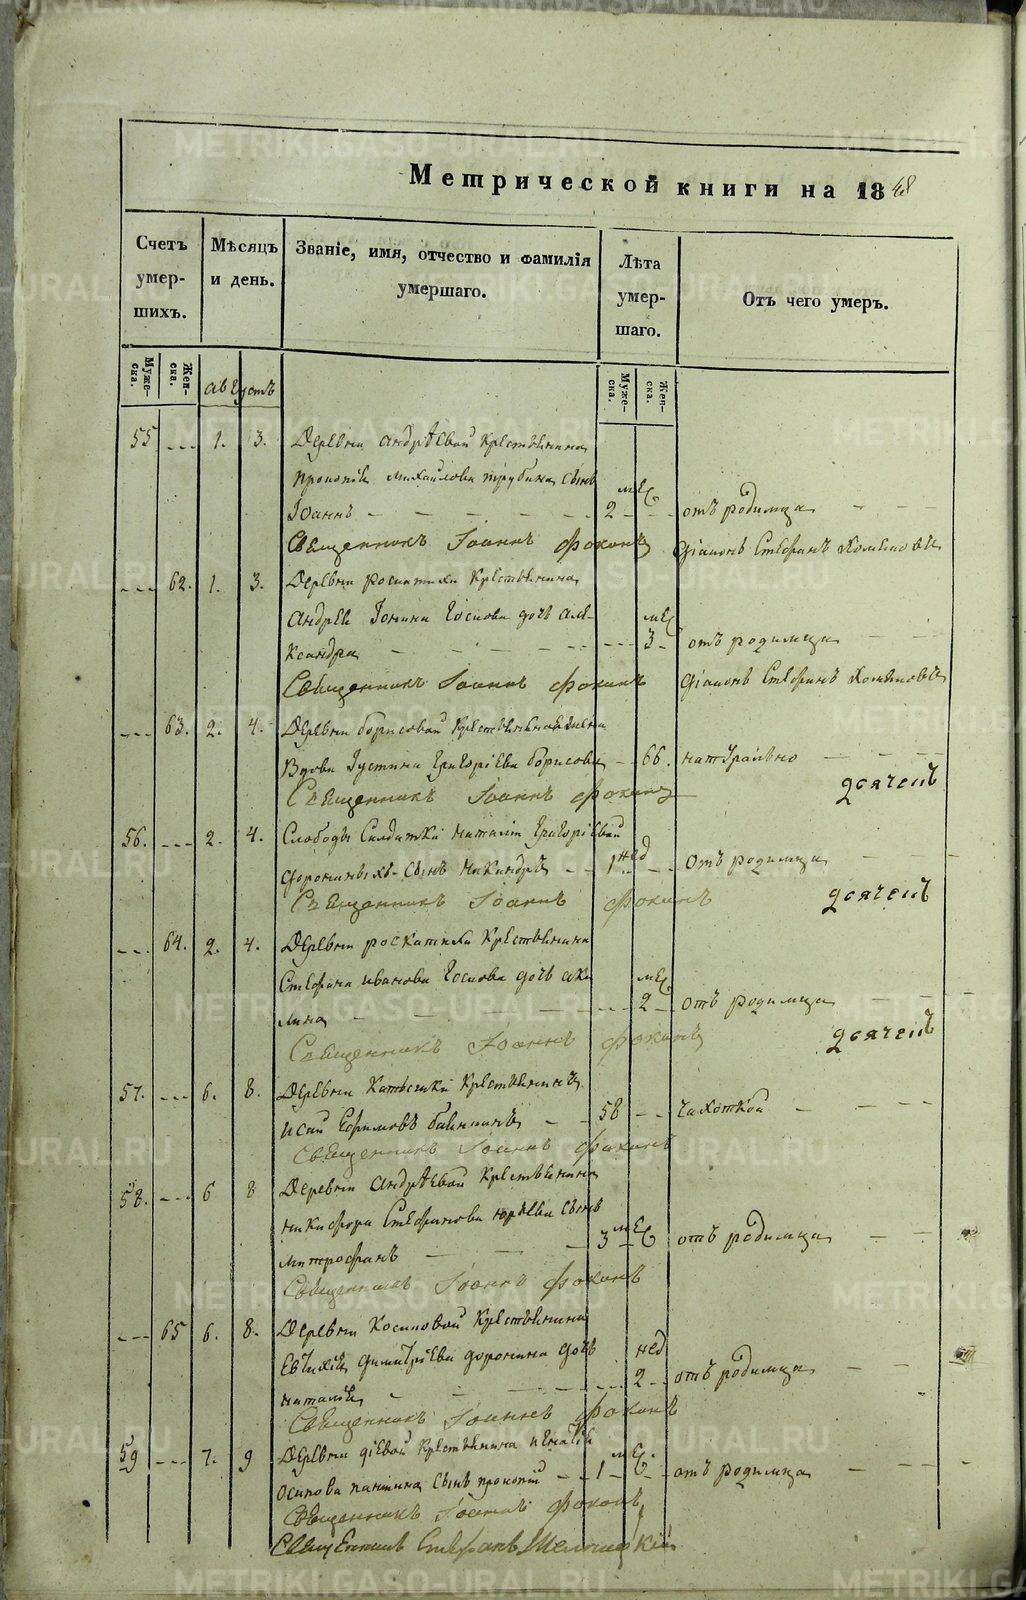 Метрической книги на 1848
Счетъ умер-шихъ.
Мѣсяцъ и день.
Званіе, имя, отчество и фамилія умершаго.
Лѣта умер-шаго.
Отъ чего умеръ.
Муже-ска.
Жен-ска.
августъ
Муже-ска.
Жен-ска.
55 1. 3. Деревни Андрѣевой крестьянина
Прокопія Михайлова Трубина сынъ
Іоаннъ 2 мес отъ родимца
Священникъ Іоаннъ Фокинъ Діаконъ Стефанъ
62. 1. 3. Деревни крестьянина
Андрея Іосифова дочь Але-
ксандра 3 мес отъ родимца
Священникъ Іоаннъ Фокинъ Діаконъ Стефанъ
63. 2. 4. Деревни Борисовой
Вдова Іустина Григоріева Борисова 66. натурально
Священникъ Іоаннъ Фокинъ
56. 2. 4. Слободы Солдатки Наталіи Григоріевой
сынъ Никандръ 1 нед отъ родимца
Священникъ Іоаннъ Фокинъ
64. 2. 4. Деревни Роскатихи крестьянина
Стефана Иванова дочь Аки-
лина 2 мес отъ родимца
Священникъ Іоаннъ Фокинъ
57. 6. 8. Деревни крестьянинъ
Исай Ефимовъ 58 чахоткой
Священникъ Іоаннъ Фокинъ
58. 6 8 Деревни Андрѣевой крестьянина
Никифора Стефанова Юрьева сынъ
Митрофанъ 3 мес отъ родимца
Священникъ Іоаннъ Фокинъ
65 6. 8. Деревни Косиковой крестьянина
Евтихія Димитріева Доронина дочь
Наталія 2 нед отъ родимца
Священникъ Іоаннъ Фокинъ
59 7. 9 Деревни Діевой крестьянина Игнатія
Осипова Пантина сынъ Прокопій 1 мес. отъ родимца
Священникъ Іоаннъ Фокинъ
Священникъ Стефанъ
METRIKI.GASO-URAL.RU